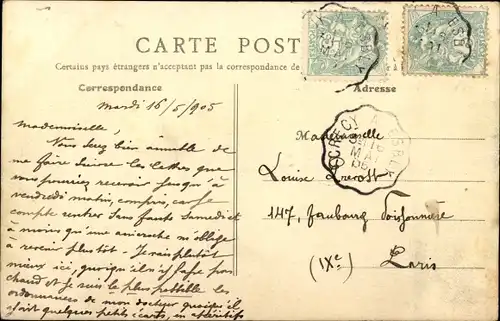 CARTE POST
Certains pays étrangers n'acceptant pas la correspondance
Correspondance
Adresse
mardi 16/5/905
Mademoiselle,
Vous serez bien aimable de
me faire suivre les lettres que
vous pourriez recevoir jusqu'à
vendredi matin, compris, car je
compte rentrer sans faute samedi et
à moins qu'une anicroche m'oblige
à revenir plutôt. Je vais plutôt
mieux ici, quoiqu'il n'y fasse pas
chaud et je suis le plus possible les
ordonnances de mon docteur quoiqu'il
y ait quelques petits écarts, en
Mademoiselle
Louise Prevost
147, Faubourg Poissonnière
(IXe)
Paris
CRECY A ESBLY
16
MAI
05